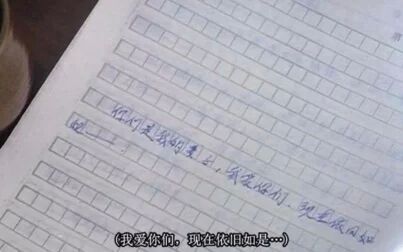 第
你们是我的爱人,我爱你们,现在依旧如
(我爱你们,现在依旧如是…)